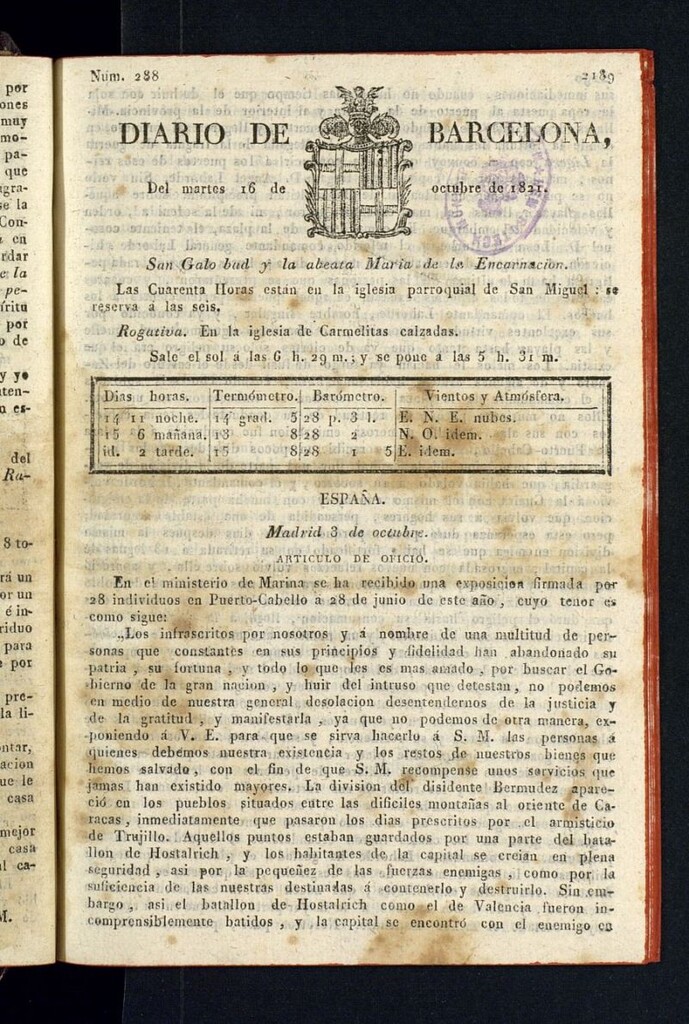 por
ones
muy
mo-
pa-
que
gra-
se la
Con-
en
rdar
e la
pe-
íritu
por
o de
y yo
aten-
n es-
del
Ra-
8 to-
rá un
or un
é in-
riduo
para
e por
pre-
la li-
ntar,
acion
ue le
casa
mejor
casa
al ca-
M.
Núm. 288 2189
DIARIO DE BARCELONA,
Del martes 16 de octubre de 1821.
San Galo bad y la abeata Maria de la Encarnacion.
Las Cuarenta Horas estan en la iglesia parroquial de San Miguel : se
reserva á las seis.
Rogativa. En la iglesia de Carmelitas calzadas.
Sale el sol á las 6 h. 29 m.; y se pone á las 5 h. 31 m.
Dias horas. Termómetro. Barómetro. Vientos y Atmósfera.
14 11 noche. 14 grad. 5 28 p. 3 l. E. N. E. nubes.
15 6 mañana. 13 8 28 2 N. O. idem.
id. 2 tarde. 15 8 28 1 5 E. idem.
ESPAÑA.
Madrid 3 de octubre.
ARTICULO DE OFICIO.
En el ministerio de Marina se ha recibido una exposicion firmada por
28 individuos en Puerto-Cabello a 28 de junio de este año , cuyo tenor es
como sigue:
„Los infrascritos por nosotros y á nombre de una multitud de per-
sonas que constantes en sus principios y fidelidad han abandonado su
patria , su fortuna , y todo lo que les es mas amado , por buscar el Go-
bierno de la gran nacion , y huir del intruso que detestan , no podemos
en medio de nuestra general desolacion desentendernos de la justicia y
de la gratitud , y manifestarla , ya que no podemos de otra manera, ex-
poniendo á V. E. para que se sirva hacerlo á S. M. las personas á
quienes debemos nuestra existencia y los restos de nuestros bienes que
hemos salvado , con el fin de que S. M. recompense unos servicios que
jamas han existido mayores. La division del disidente Bermudez apare-
ció en los pueblos situados entre las dificiles montañas al oriente de Ca-
racas , inmediatamente que pasaron los dias prescritos por el armisticio
de Trujillo. Aquellos puntos estaban guardados por una parte del bata-
llon de Hostalrich , y los habitantes de la capital se creian en plena
seguridad , asi por la pequeñez de las fuerzas enemigas , como por la
suficiencia de las nuestras destinadas á contenerlo y destruirlo. Sin em-
bargo , asi el batallon de Hostalrich como el de Valencia fueron in-
comprensiblemente batidos , y la capital se encontró con el enemigo en